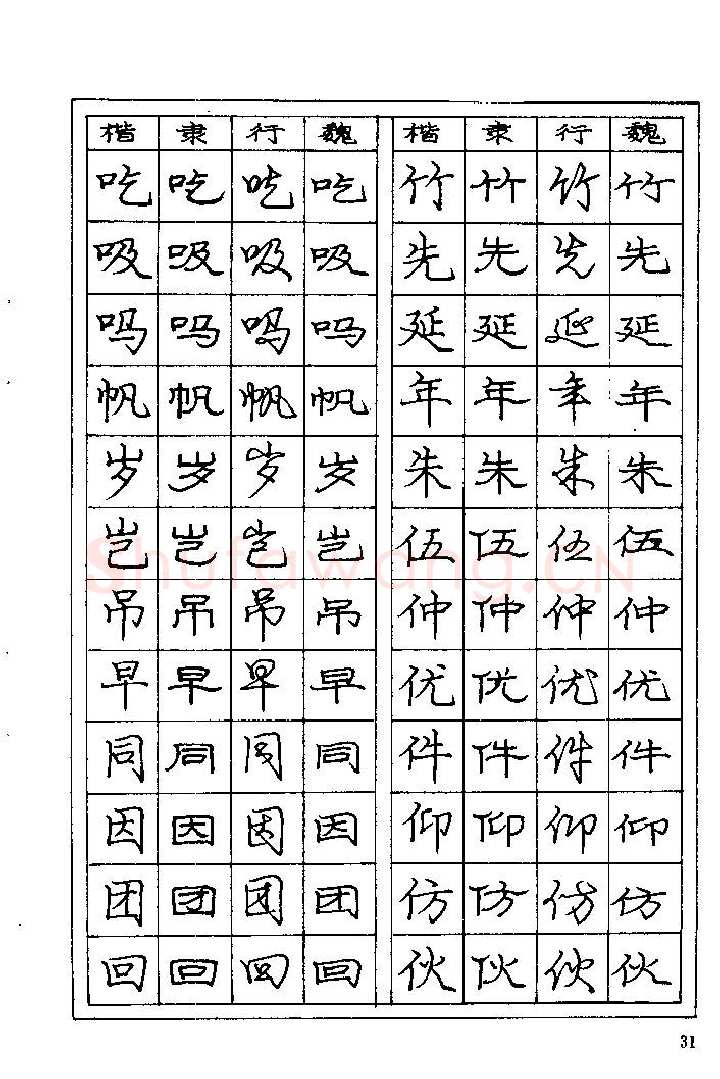 楷 隶 行 魏 楷 隶 行 魏
吃 吃 吃 吃 竹 竹 竹 竹
吸 吸 吸 吸 先 先 先 先
吗 吗 吗 吗 延 延 延 延
帆 帆 帆 帆 年 年 年 年
岁 岁 岁 岁 朱 朱 朱 朱
岂 岂 岂 岂 伍 伍 伍 伍
Shufawang.CN
吊 吊 吊 吊 仲 仲 仲 仲
早 早 早 早 优 优 优 优
同 同 同 同 件 件 件 件
因 因 因 因 仰 仰 仰 仰
团 团 团 团 仿 仿 仿 仿
回 回 回 回 伙 伙 伙 伙
31